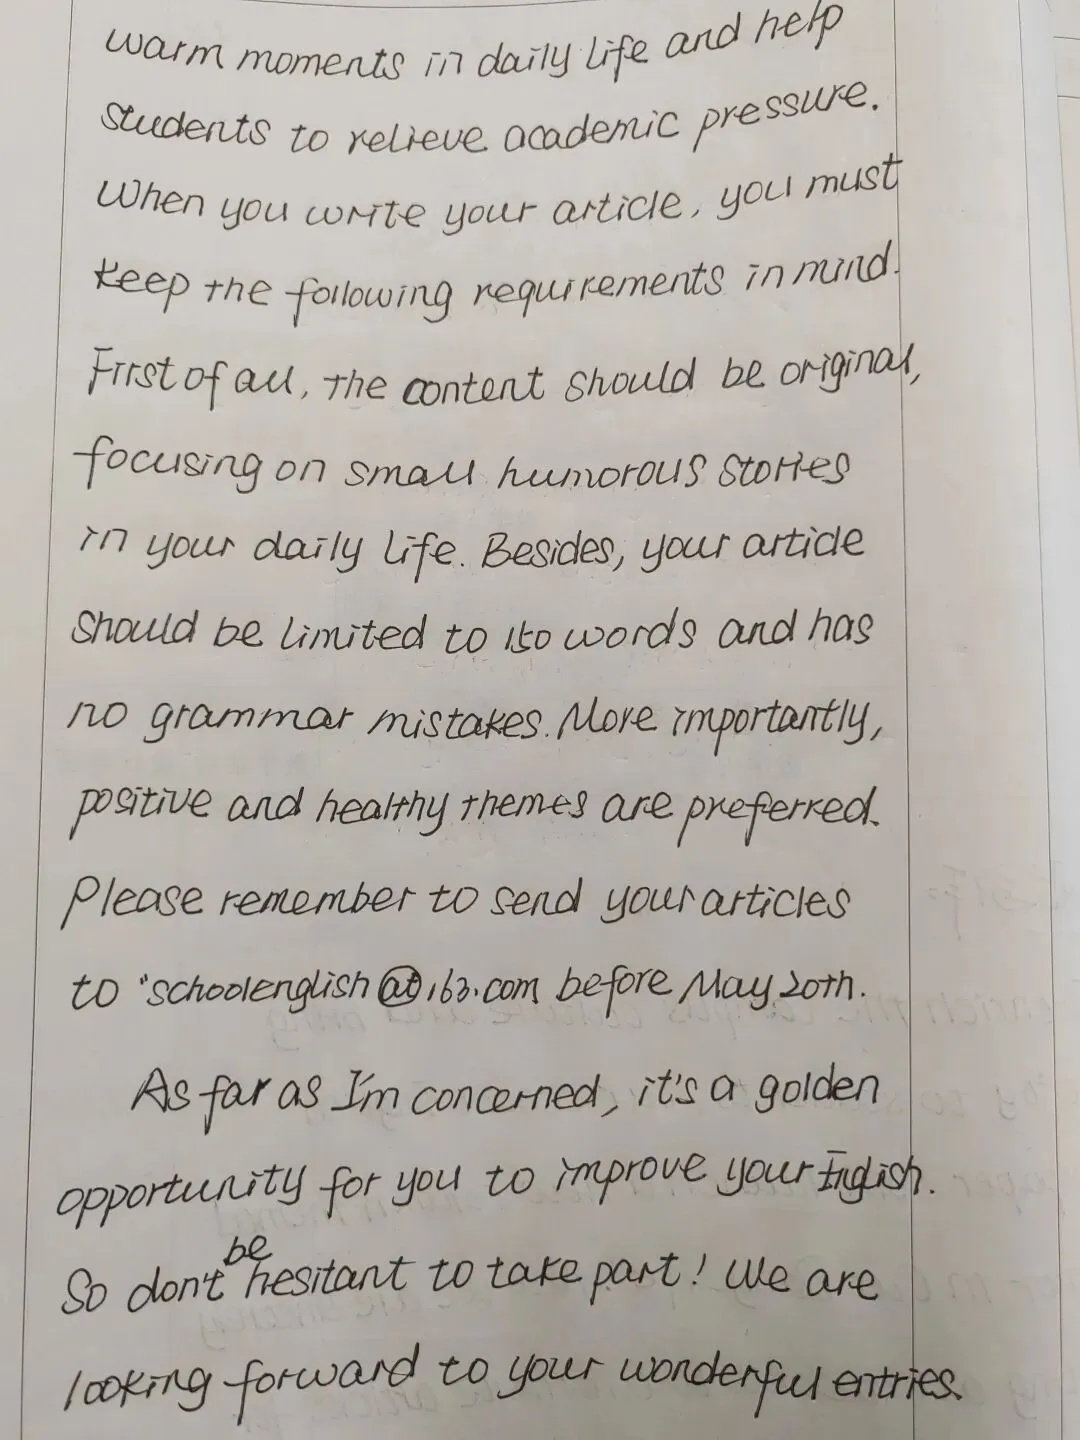 warm moments in daily life and help
students to relieve academic pressure.
When you write your article, you must
keep the following requirements in mind.
First of all, the content should be original,
focusing on small humorous stories
in your daily life. Besides, your article
should be limited to 150 words and has
no grammar mistakes. More importantly,
positive and healthy themes are preferred.
Please remember to send your articles
to "schoolenglish@163.com before May 20th.
As far as I'm concerned, it's a golden
opportunity for you to improve your English.
be
So don't hesitant to take part! We are
looking forward to your wonderful entries.